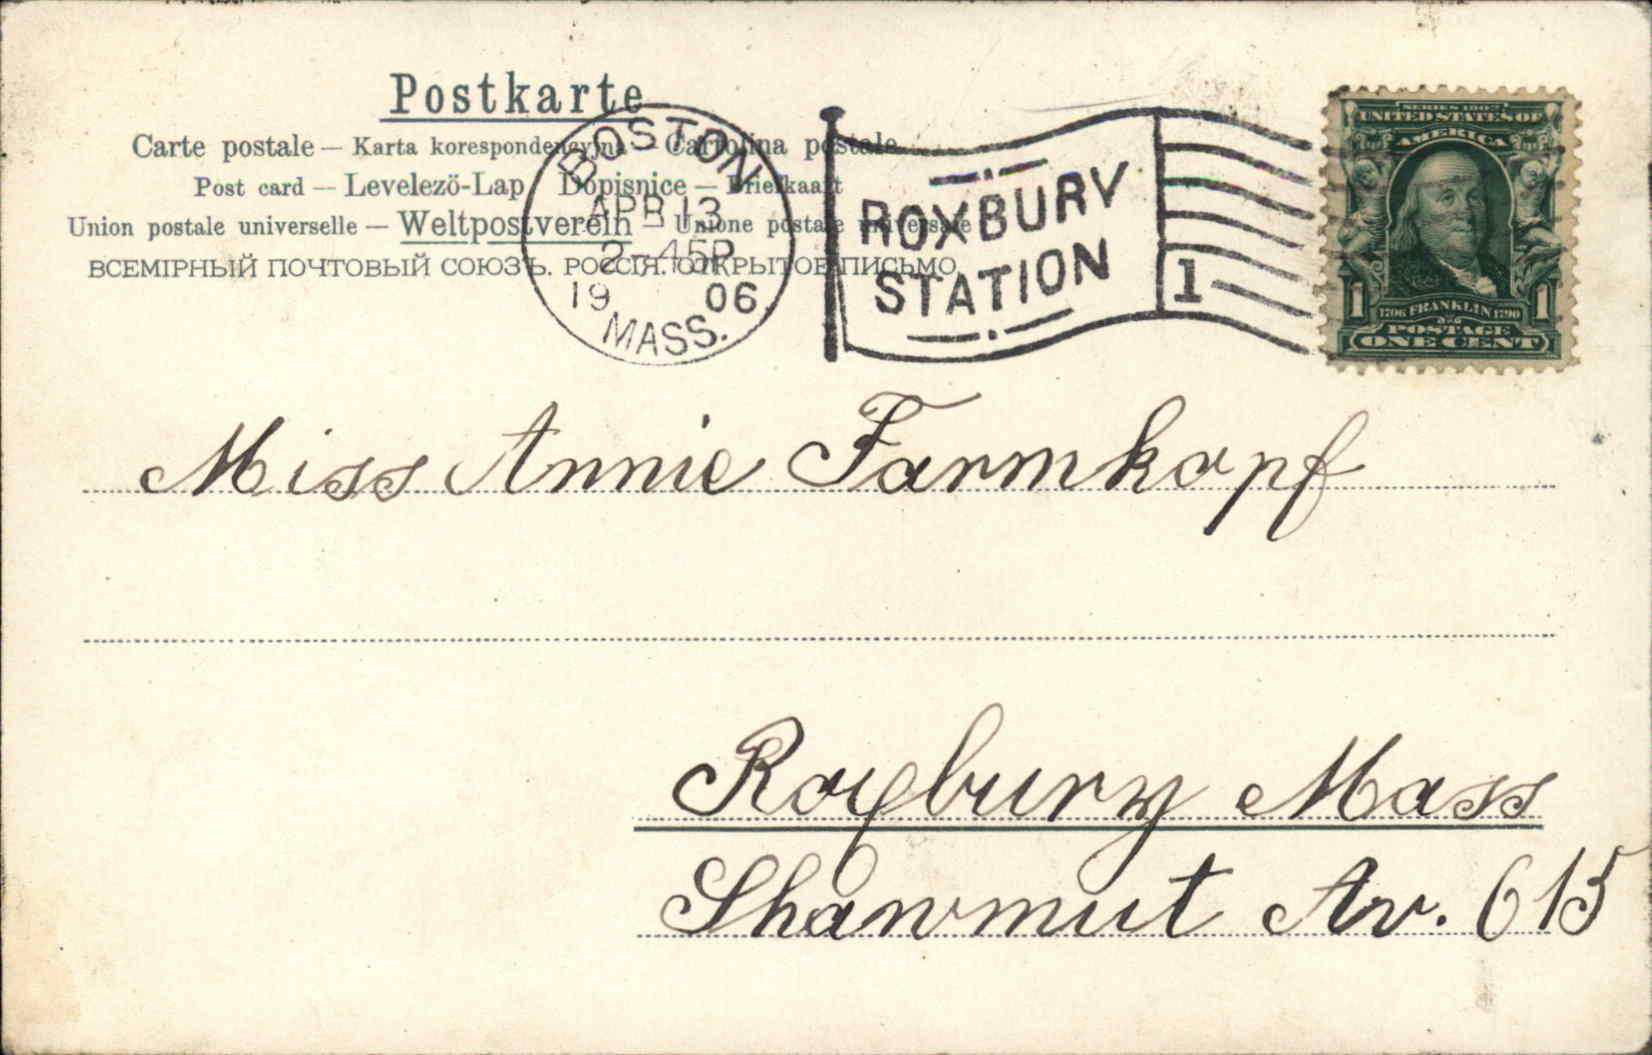 Postkarte
Carte postale — Karta korespondencyjna — Cartolina postale
Post card — Levelező-Lap — Dopisnice — Briefkaart
Union postale universelle — Weltpostverein — Unione postale universale
ВСЕМІРНЫЙ ПОЧТОВЫЙ СОЮЗЪ. РОССІЯ. ОТКРЫТОЕ ПИСЬМО
BOSTON
APR 13
2-45P
19 06
MASS.
ROXBURY
STATION
1
SERIES 1902
UNITED STATES OF
AMERICA
1 1
1706 FRANKLIN 1790
POSTAGE
ONE CENT
Miss Annie Farmkopf
Roxbury Mass
Shawmut Av. 615